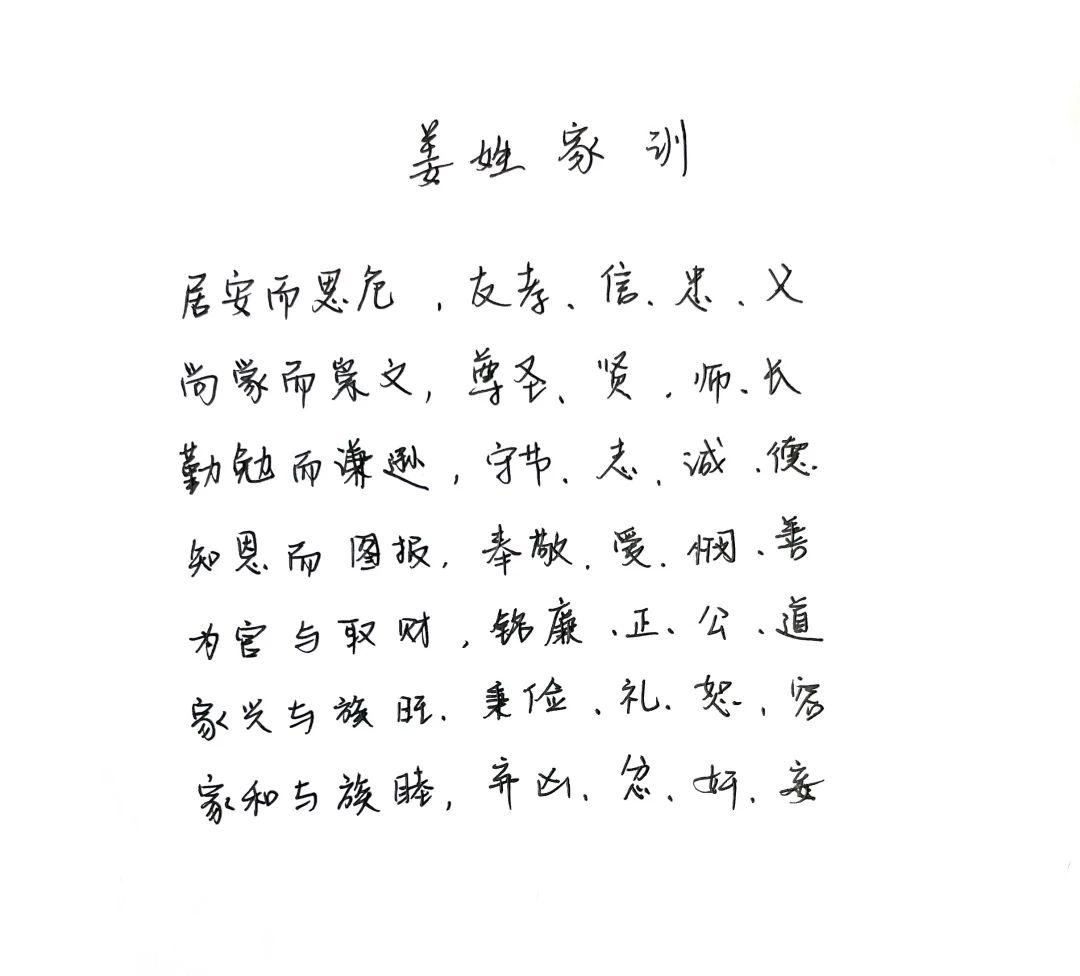 姜姓家训
居安而思危，友孝、信、忠、义
尚蒙而崇文，尊圣、贤、师、长
勤勉而谦逊，守节、志、诚、德
知恩而图报，奉敬、爱、悯、善
为官与取财，铭廉、正、公、道
家兴与族旺，秉俭、礼、恕、容
家和与族睦，弃凶、忿、奸、妄